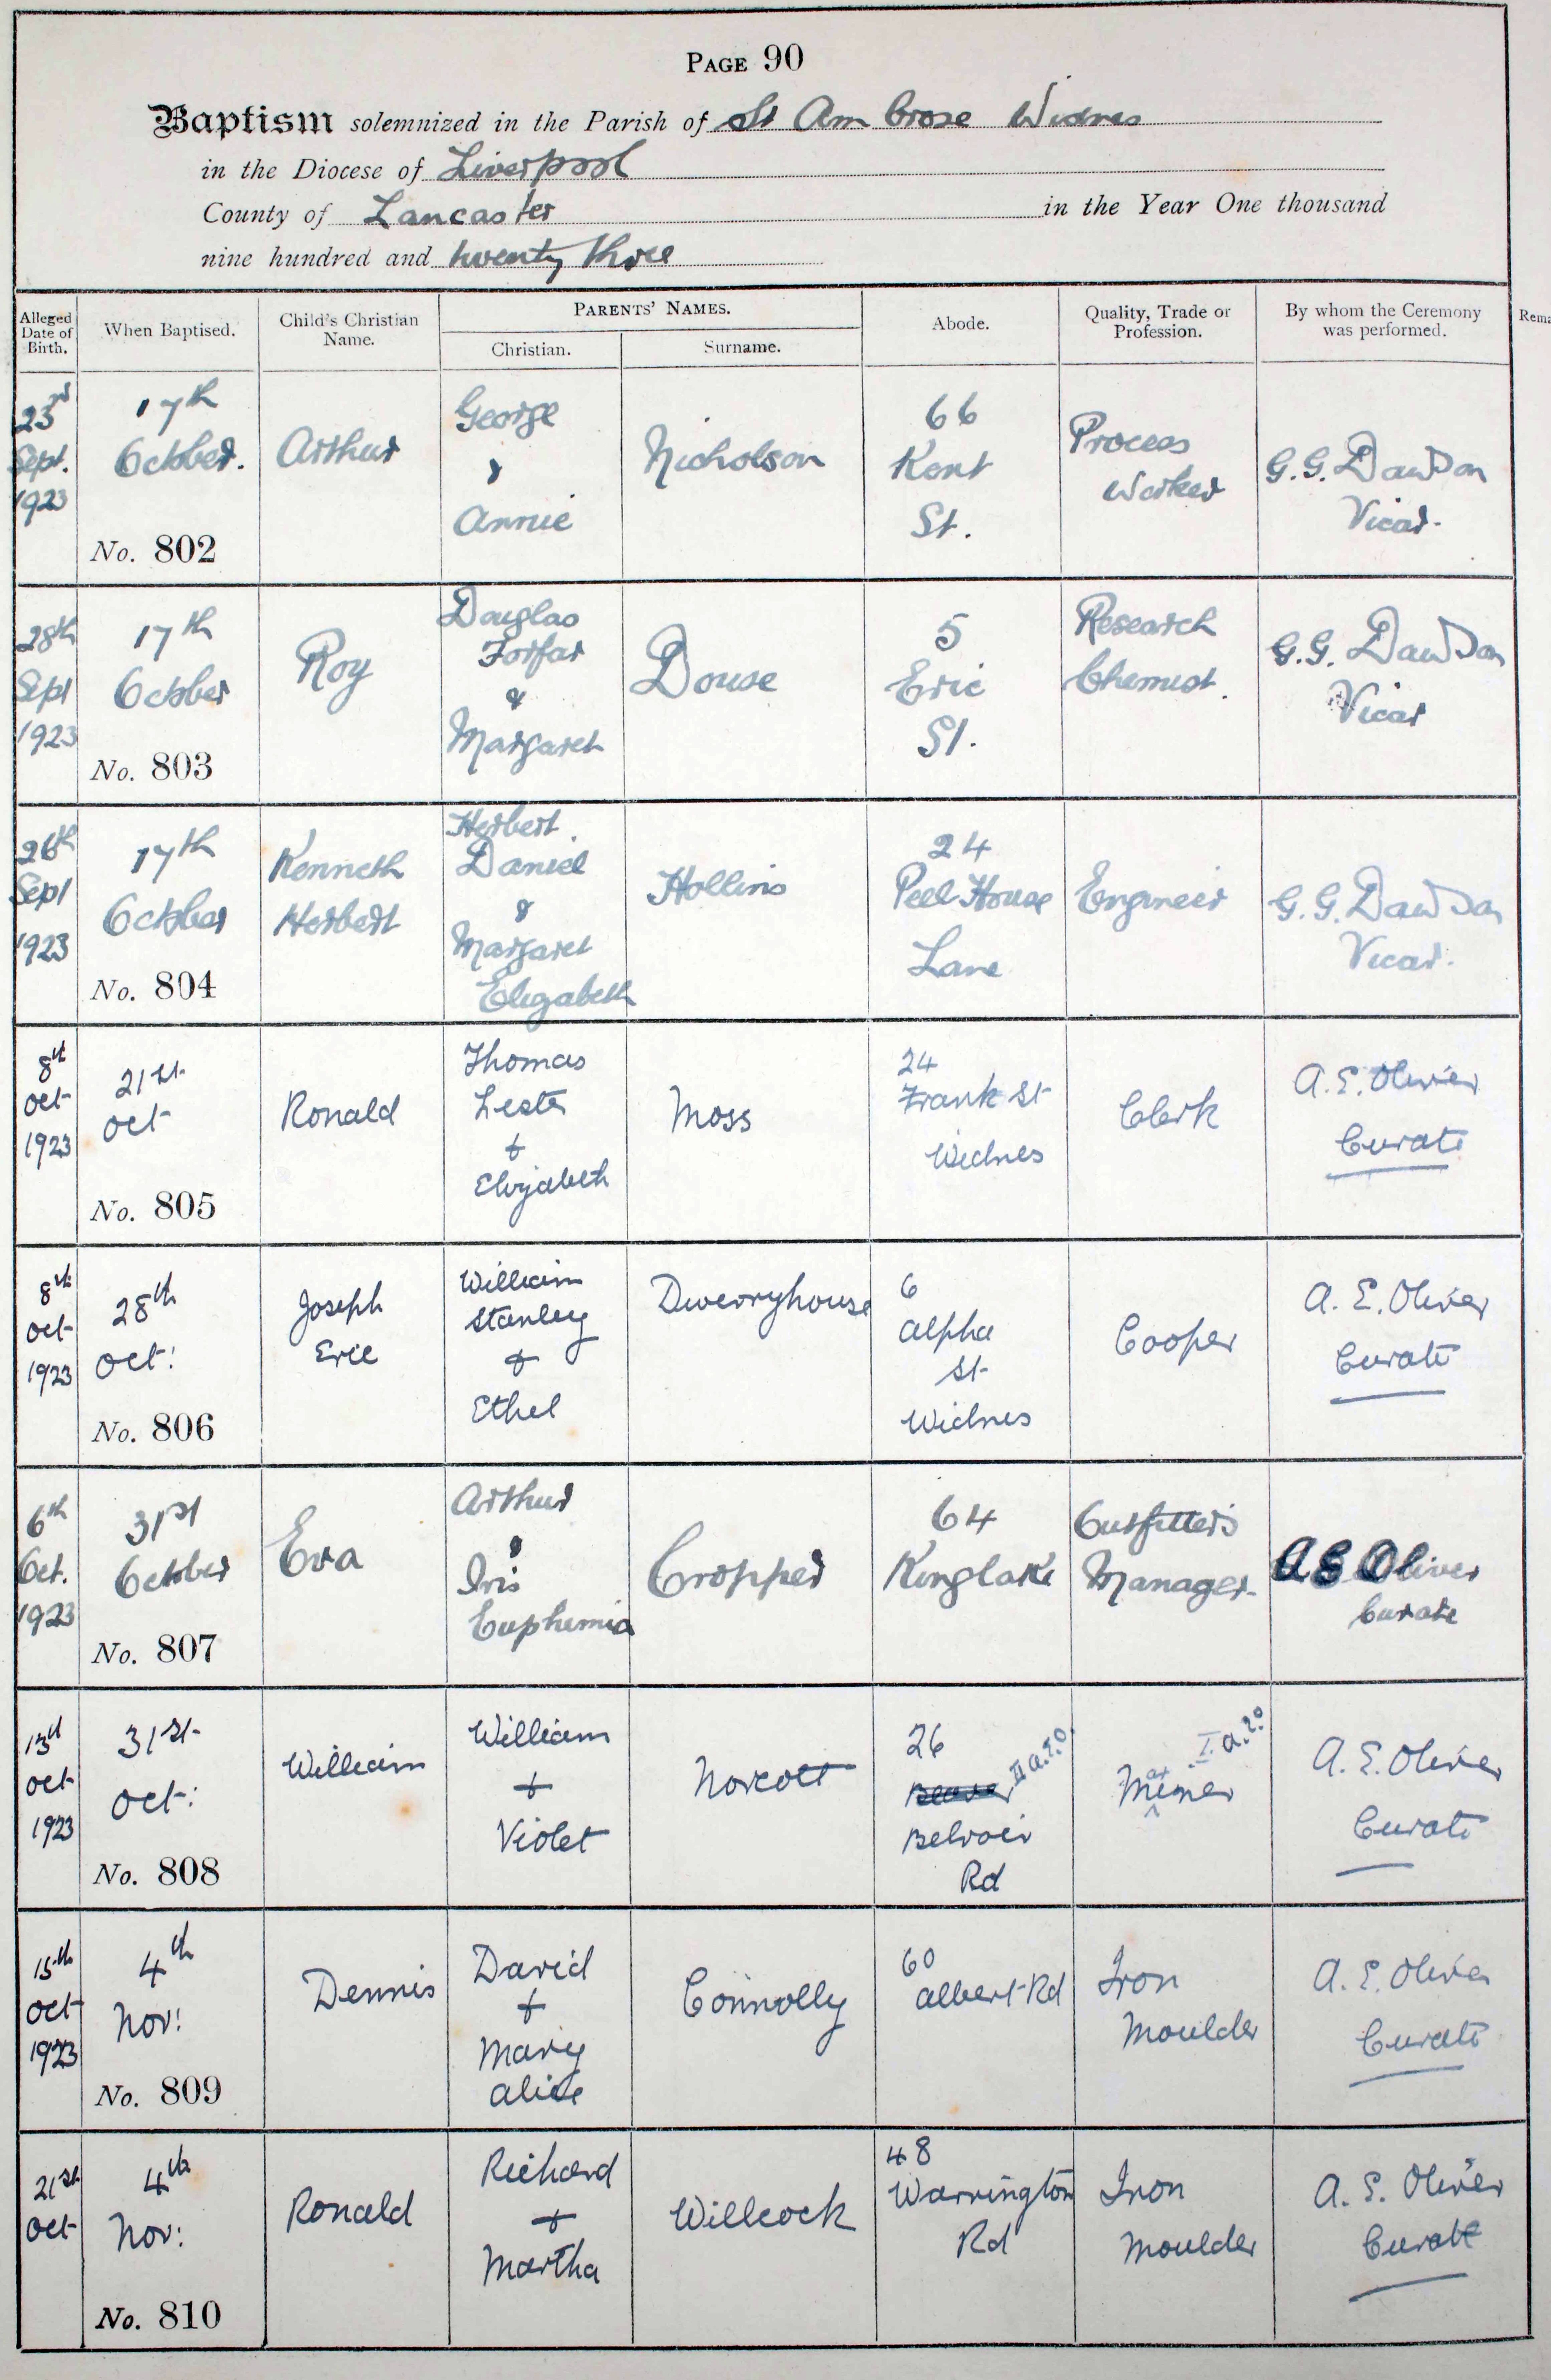 PAGE 90
Baptism solemnized in the Parish of St Ambrose Widnes
in the Diocese of Liverpool
County of Lancaster in the Year One thousand
nine hundred and twenty three
Alleged Date of Birth.
When Baptised.
Child's Christian Name.
PARENTS' NAMES.
Christian.
Surname.
Abode.
Quality, Trade or Profession.
By whom the Ceremony was performed.
Rema
23rd
Sept.
1923
17th
October.
No. 802
Arthur
George
&
Annie
Nicholson
66
Kent
St.
Process
Worker
G.G. Dawson
Vicar.
28th
Sept
1923
17th
October
No. 803
Roy
Douglas
Forfar
&
Margaret
Douse
5
Eric
St.
Research
Chemist.
G.G. Dawson
Vicar
26th
Sept
1923
17th
October
No. 804
Kenneth
Herbert
Herbert
Daniel
&
Margaret
Elizabeth
Hollins
24
Peel House
Lane
Engineer
G.G. Dawson
Vicar.
8th
Oct
1923
21st
Oct
No. 805
Ronald
Thomas
Lester
+
Elizabeth
Moss
24
Frank St
Widnes
Clerk
A.E. Oliver
Curate
8th
Oct
1923
28th
Oct:
No. 806
Joseph
Eric
William
Stanley
+
Ethel
Dwerryhouse
6
Alpha
St
Widnes
Cooper
A. E. Oliver
Curate
6th
Oct.
1923
31st
October
No. 807
Eva
Arthur
&
Iris
Euphemia
Cropper
64
Kinglake
Outfitter's
Manager.
A E Oliver
Curate
13th
Oct
1923
31st
Oct:
No. 808
William
William
+
Violet
Norcott
26
Belvoir
Rd
A. E. Oliver
Curate
15th
Oct
1923
4th
Nov:
No. 809
Dennis
David
+
Mary
Alice
Connolly
60
Albert Rd
Iron
Moulder
A. E. Oliver
Curate
21st
Oct
4th
Nov:
No. 810
Ronald
Richard
+
Martha
Willcock
48
Warrington
Rd
Iron
Moulder
A. E. Oliver
Curate